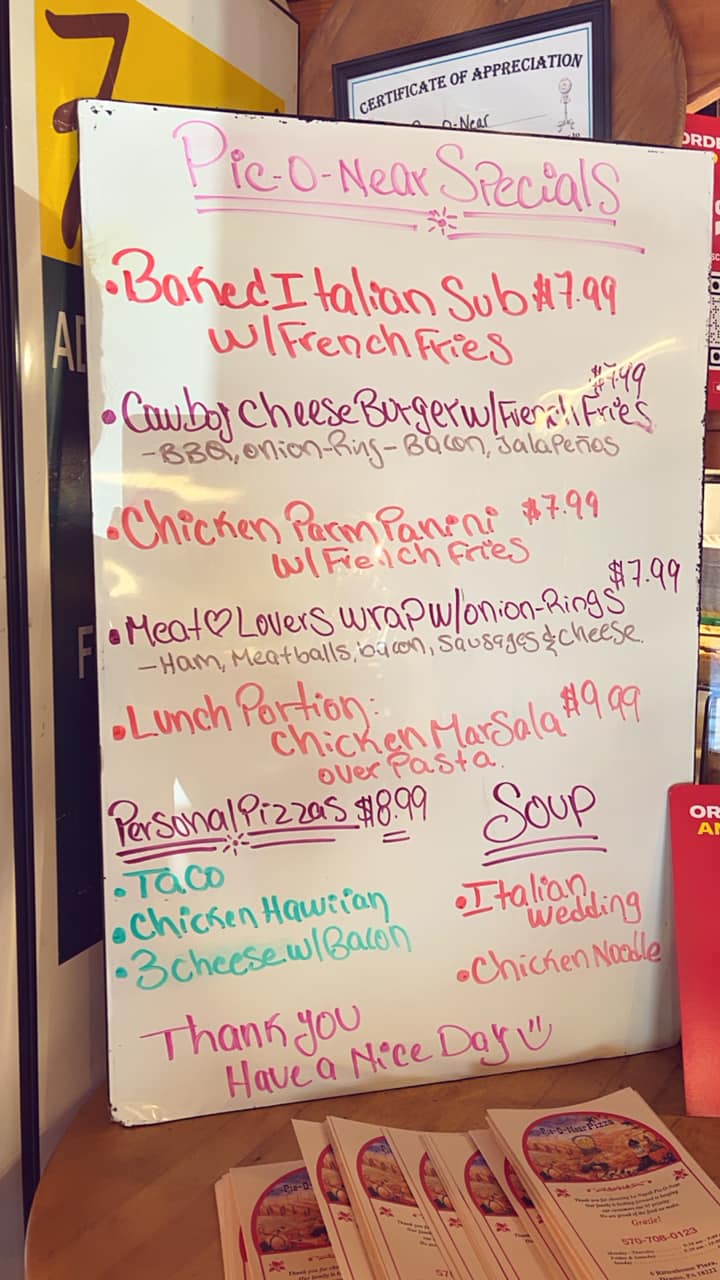 7
CERTIFICATE OF APPRECIATION
O-Near
Pic-O-Near Specials
•Baked Italian Sub $7.99
w/French Fries
$7.49
•Cowboy Cheese Burger w/French Fries
-BBQ, onion-Ring- Bacon, Jalapeños
•Chicken Parm Panini $7.99
w/French Fries
$7.99
•Meat♡Lovers wrap w/onion-Rings
-Ham, Meatballs, bacon, Sausages & cheese.
•Lunch Portion:
Chicken Marsala $9.99
over Pasta.
Personal Pizzas $8.99
•Taco
•Chicken Hawiian
•3 cheese w/Bacon
Soup
•Italian
wedding
•Chicken Noodle
Thank you
Have a Nice Day
Pic-O-Near Pizza
Grade!
570-708-0123